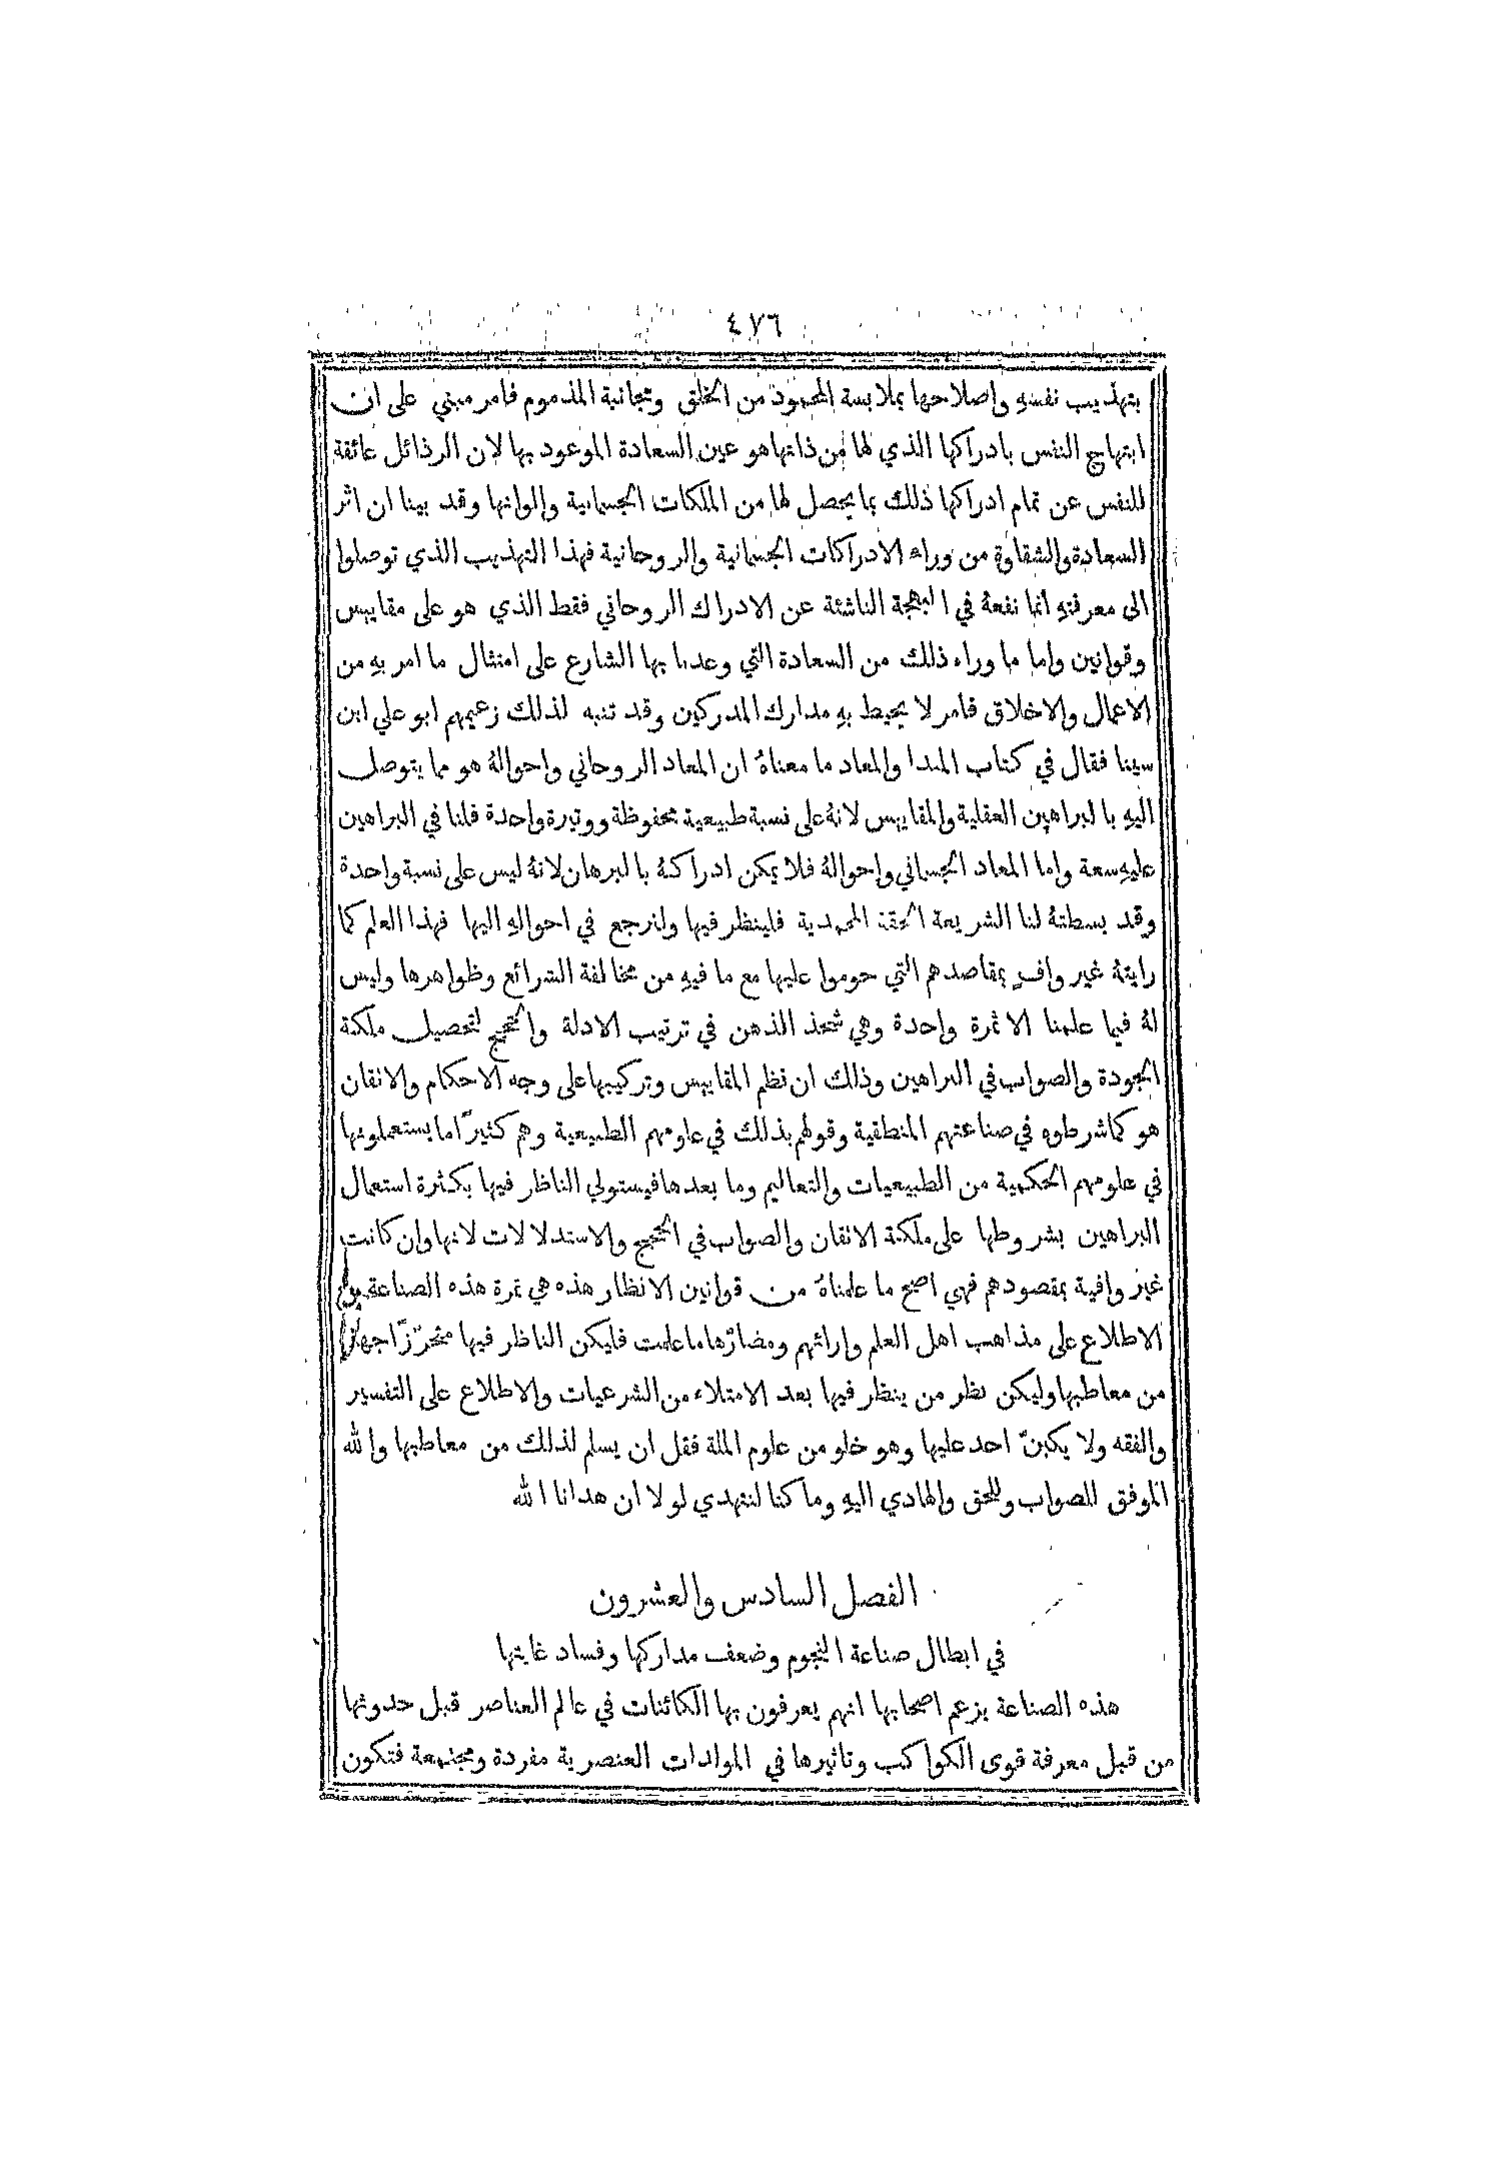 ٤٧٦
بتهذيب نفسهِ واصلاحها بملابسة المحمود من الخلق ومجانبة المذموم فامر مبني على ان
ابتهاج النفس بادراكها الذي لها من ذاتها هو عين السعادة الموعود بها لان الرذائل عائقة
للنفس عن تمام ادراكها ذلك بما يحصل لها من الملكات الجسمانية والوانها وقد بينا ان اثر
السعادة والشقاوة من وراء الادراكات الجسمانية والروحانية فهذا التهذيب الذي توصلوا
الى معرفتهِ انما نفعهُ في البهجة الناشئة عن الادراك الروحاني فقط الذي هو على مقاييس
وقوانين واما ما وراء ذلك من السعادة التي وعدنا بها الشارع على امتثال ما امر بهِ من
الاعمال والاخلاق فامر لا يحيط بهِ مدارك المدركين وقد تنبه لذلك زعيمهم ابو علي ابن
سينا فقال في كتاب المبدا والمعاد ما معناهُ ان المعاد الروحاني واحوالهُ هو مما يتوصل
اليهِ بالبراهين العقلية والمقاييس لانهُ على نسبة طبيعية محفوظة ووتيرة واحدة فلنا في البراهين
عليهِ سعة واما المعاد الجسماني واحوالهُ فلا يمكن ادراكهُ بالبرهان لانهُ ليس على نسبة واحدة
وقد بسطتهُ لنا الشريعة الحقة المحمدية فلينظر فيها ولنرجع في احوالهِ اليها فهذا العلم كما
رايتهُ غير وافٍ بمقاصدهم التي حوموا عليها مع ما فيهِ من مخالفة الشرائع وظواهرها وليس
لهُ فيما علمنا الا ثمرة واحدة وهي شحذ الذهن في ترتيب الادلة والحجج لتحصيل ملكة
الجودة والصواب في البراهين وذلك ان نظم المقاييس وتركيبها على وجه الاحكام والاتقان
هو كما شرطوه في صناعتهم المنطقية وقولهم بذلك في علومهم الطبيعية وهم كثيرًا ما يستعملونها
في علومهم الحكمية من الطبيعيات والتعاليم وما بعدها فيستولي الناظر فيها بكثرة استعمال
البراهين بشروطها على ملكة الاتقان والصواب في الحجج والاستدلالات لانها وان كانت
غير وافية بمقصودهم فهي اصح ما علمناهُ من قوانين الانظار هذه هي ثمرة هذه الصناعة مع
الاطلاع على مذاهب اهل العلم وارائهم ومضارّها ما علمت فليكن الناظر فيها متحرّزًا جهده
من معاطبها وليكن نظر من ينظر فيها بعد الامتلاء من الشرعيات والاطلاع على التفسير
والفقه ولا يكبنّ احد عليها وهو خلو من علوم الملة فقل ان يسلم لذلك من معاطبها والله
الموفق للصواب وللحق والهادي اليهِ وما كنا لنهتدي لولا ان هدانا الله
الفصل السادس والعشرون
في ابطال صناعة النجوم وضعف مداركها وفساد غايتها
هذه الصناعة يزعم اصحابها انهم يعرفون بها الكائنات في عالم العناصر قبل حدوثها
من قبل معرفة قوى الكواكب وتاثيرها في المولدات العنصرية مفردة ومجتمعة فتكون